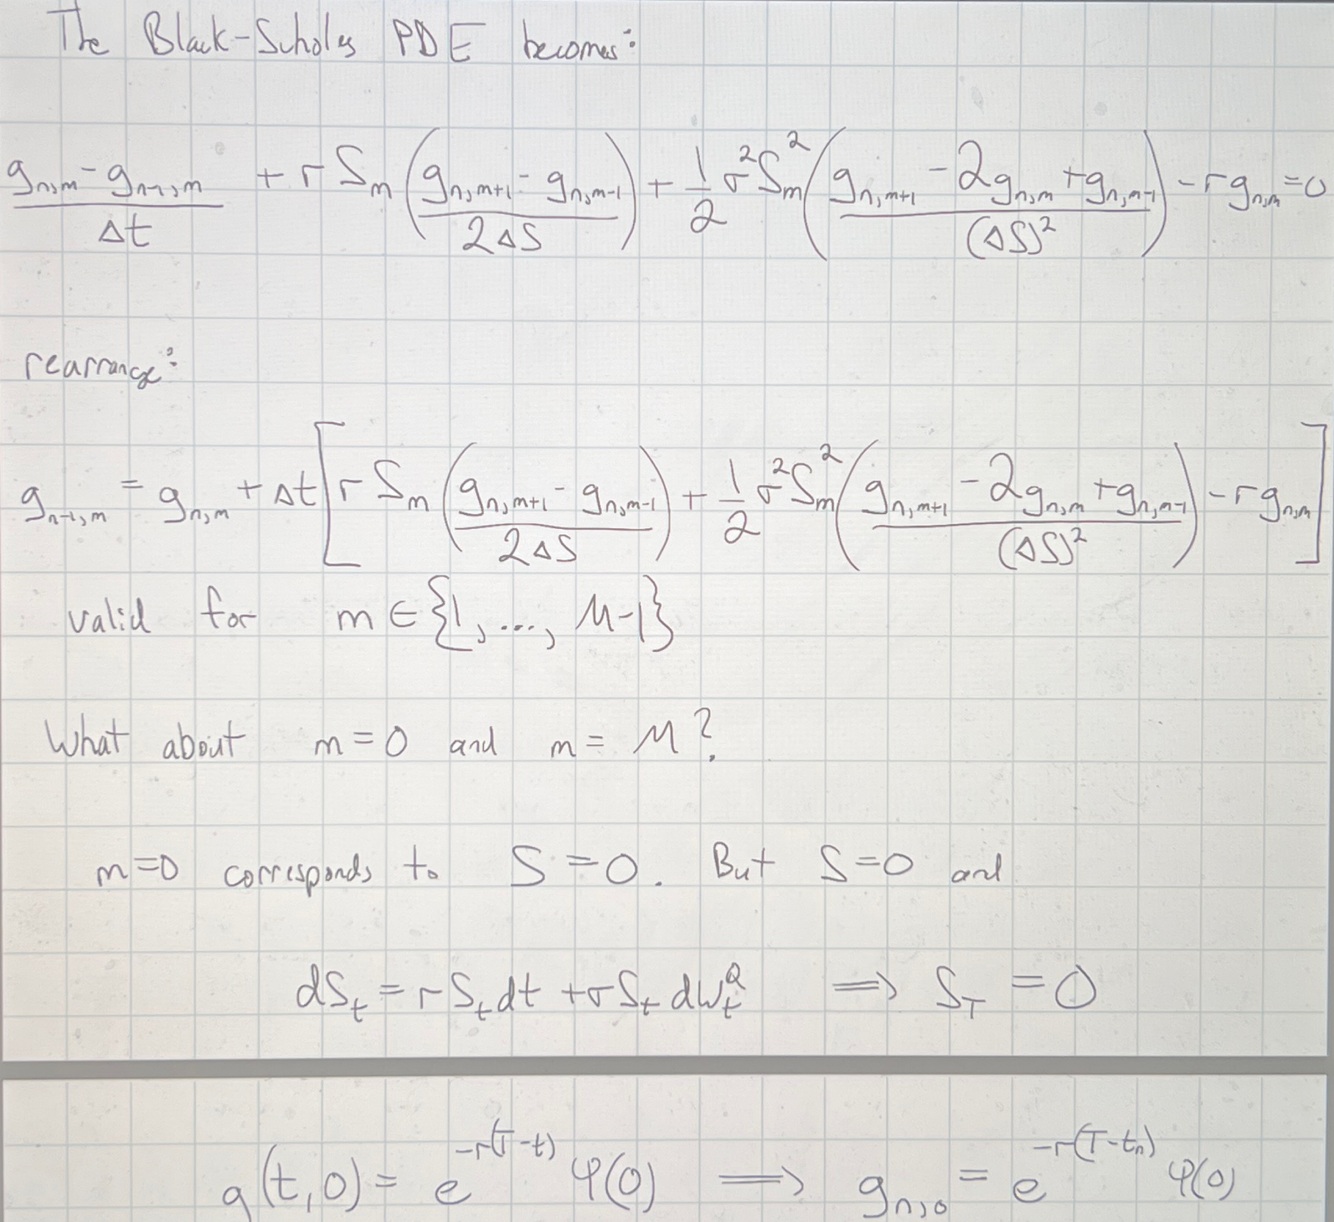 The Black-Scholes PDE becomes:
(g_{n,m} - g_{n-1,m})/Δt + r S_m ((g_{n,m+1} - g_{n,m-1})/(2ΔS)) + 1/2 σ² S_m² ((g_{n,m+1} - 2g_{n,m} + g_{n,m-1})/(ΔS)²) - r g_{n,m} = 0
rearrange:
g_{n-1,m} = g_{n,m} + Δt [ r S_m ((g_{n,m+1} - g_{n,m-1})/(2ΔS)) + 1/2 σ² S_m² ((g_{n,m+1} - 2g_{n,m} + g_{n,m-1})/(ΔS)²) - r g_{n,m} ]
valid for m ∈ {1, ..., M-1}
What about m = 0 and m = M?
m=0 corresponds to S = 0. But S=0 and
dS_t = r S_t dt + σ S_t dW_t^Q ⟹ S_T = 0
g(t,0) = e^{-r(T-t)} φ(0) ⟹ g_{n,0} = e^{-r(T-t_n)} φ(0)